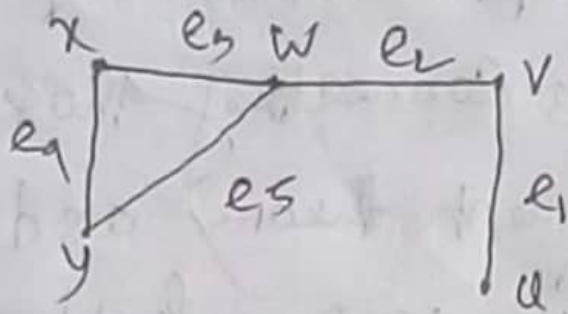 x e3 w e2 v
e4 e5 e1
y u